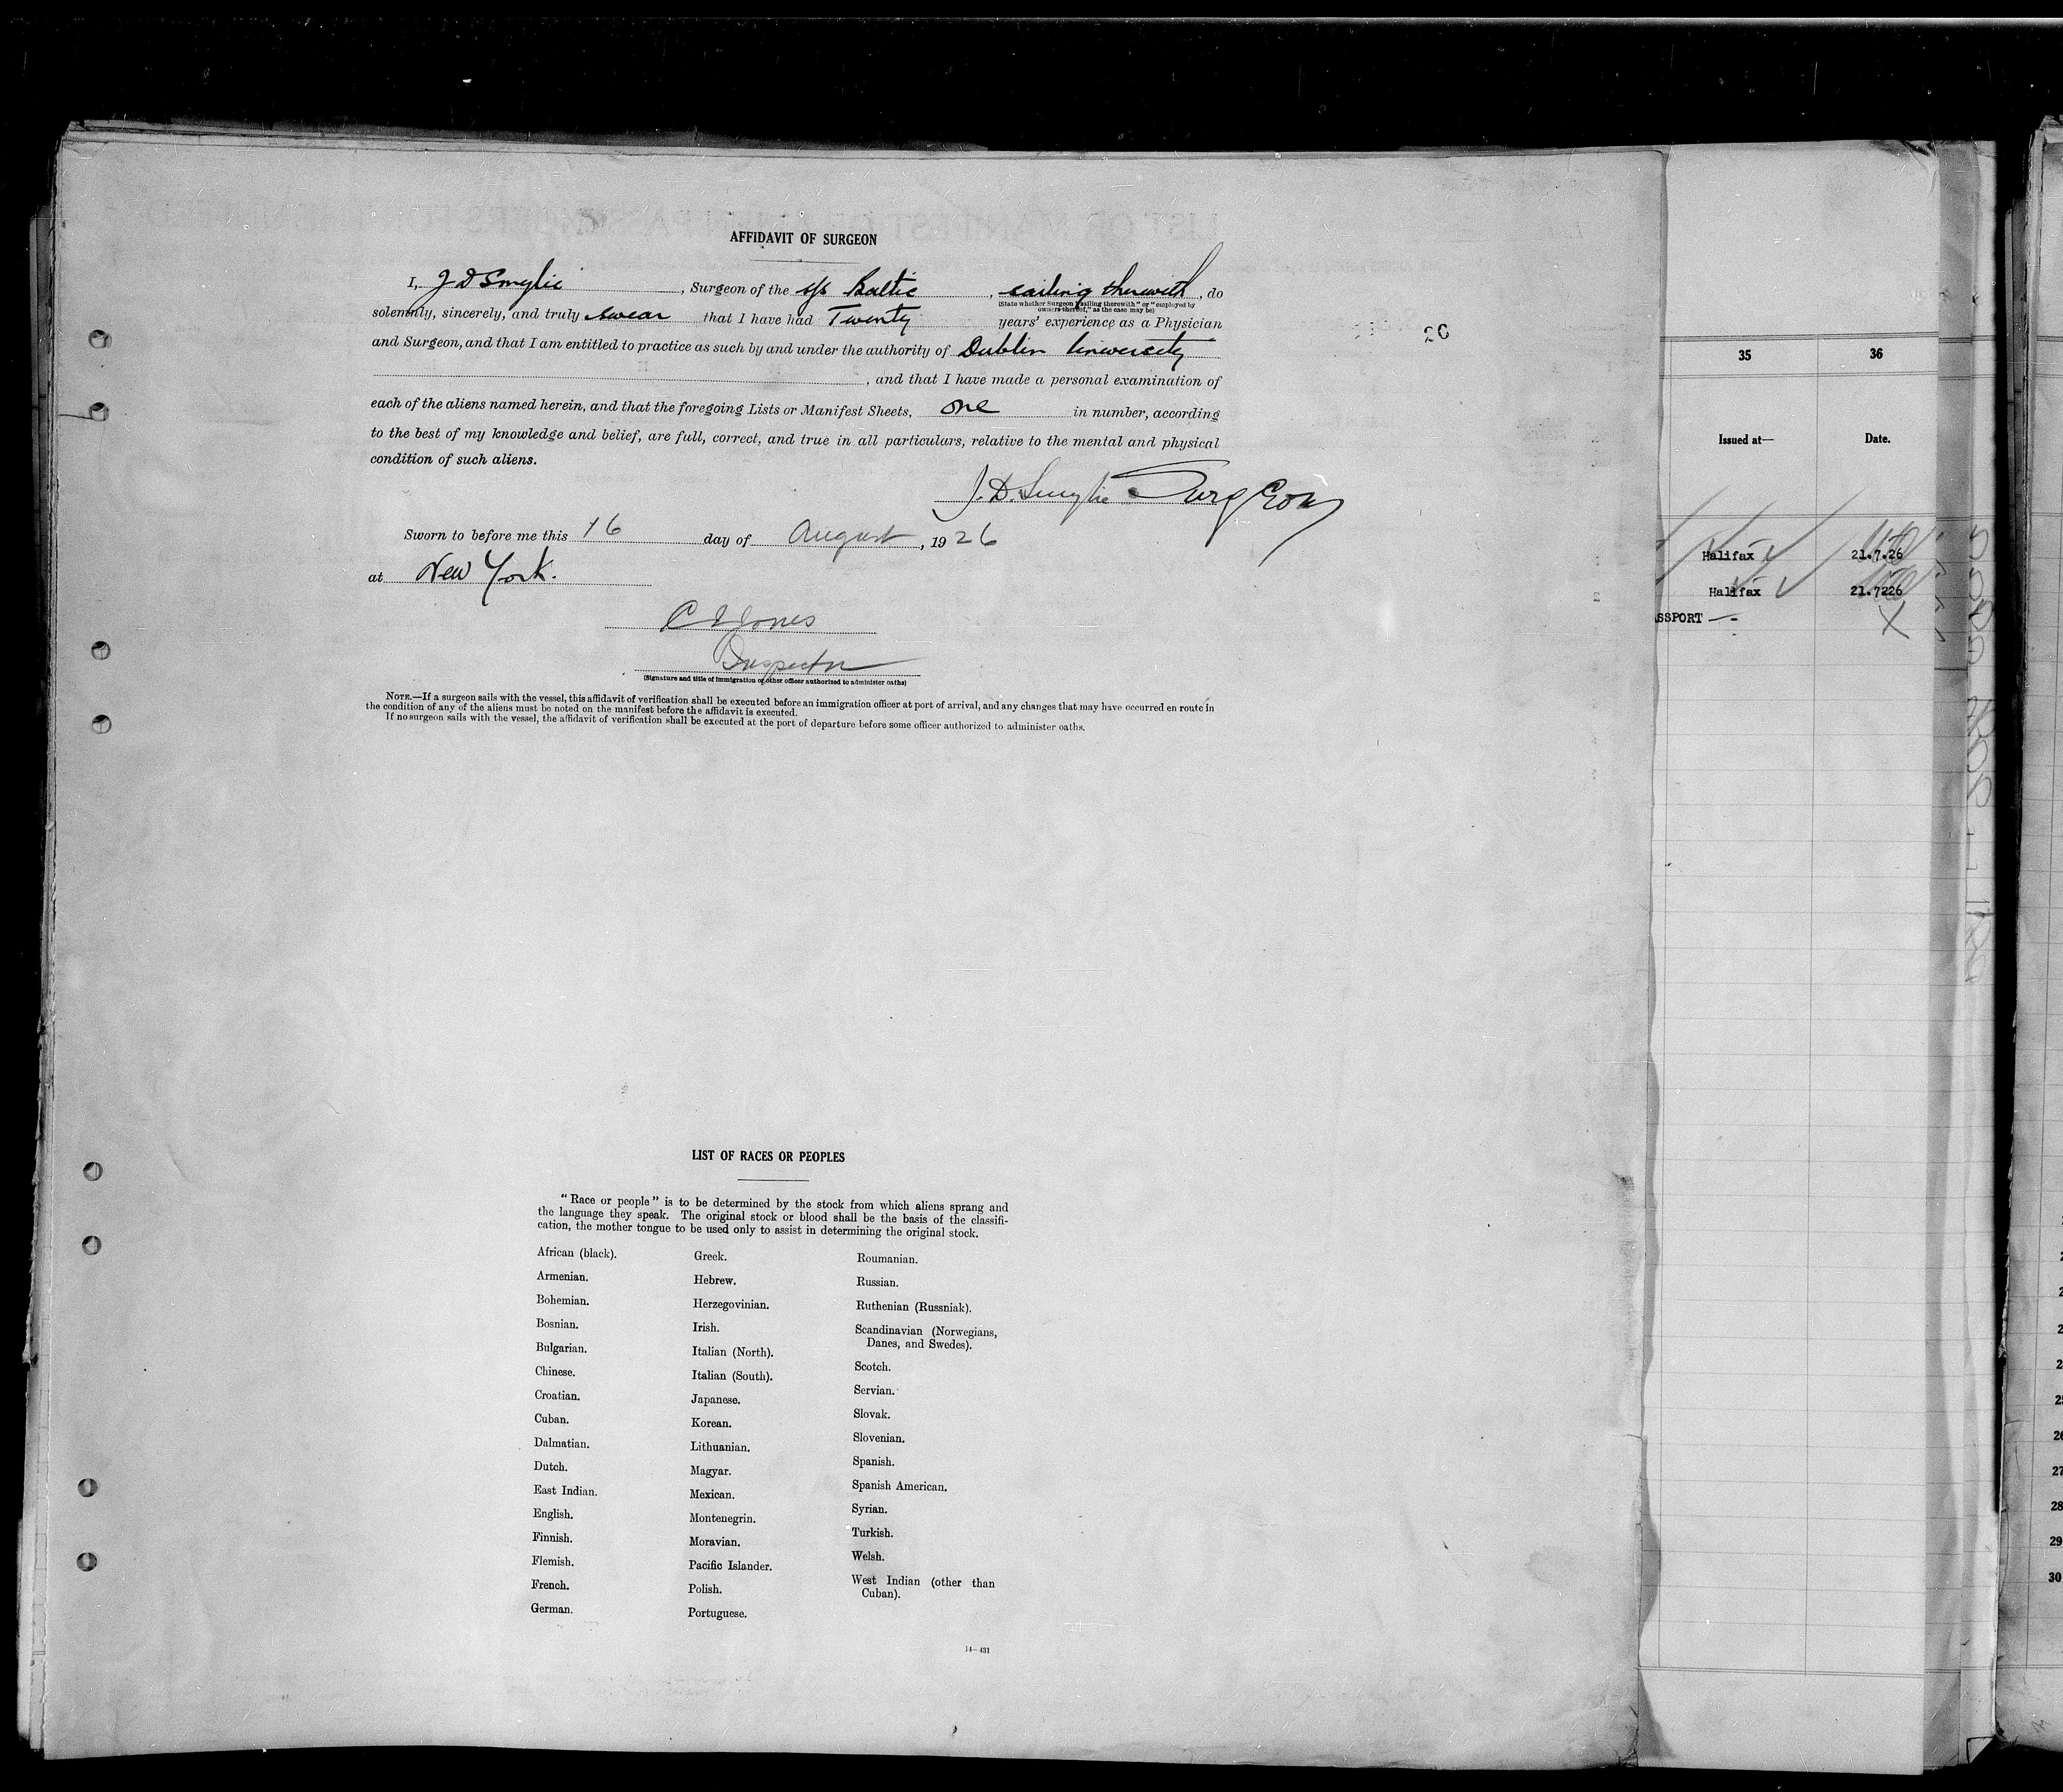 AFFIDAVIT OF SURGEON
I, J D Smylie, Surgeon of the s/s Baltic, sailing therewith, do
(State whether Surgeon "sailing therewith" or "employed by
owners thereof," as the case may be)
solemnly, sincerely, and truly swear that I have had Twenty years' experience as a Physician
and Surgeon, and that I am entitled to practice as such by and under the authority of Dublin University
, and that I have made a personal examination of
each of the aliens named herein, and that the foregoing Lists or Manifest Sheets, one in number, according
to the best of my knowledge and belief, are full, correct, and true in all particulars, relative to the mental and physical
condition of such aliens.
J. D. Smylie Surgeon
Sworn to before me this 16 day of August, 1926
at New York.
C E Jones
Inspector
(Signature and title of immigration or other officer authorized to administer oaths)
NOTE.—If a surgeon sails with the vessel, this affidavit of verification shall be executed before an immigration officer at port of arrival, and any changes that may have occurred en route in
the condition of any of the aliens must be noted on the manifest before the affidavit is executed.
If no surgeon sails with the vessel, the affidavit of verification shall be executed at the port of departure before some officer authorized to administer oaths.
20
LIST OF RACES OR PEOPLES
"Race or people" is to be determined by the stock from which aliens sprang and
the language they speak. The original stock or blood shall be the basis of the classifi-
cation, the mother tongue to be used only to assist in determining the original stock.
African (black).
Armenian.
Bohemian.
Bosnian.
Bulgarian.
Chinese.
Croatian.
Cuban.
Dalmatian.
Dutch.
East Indian.
English.
Finnish.
Flemish.
French.
German.
Greek.
Hebrew.
Herzegovinian.
Irish.
Italian (North).
Italian (South).
Japanese.
Korean.
Lithuanian.
Magyar.
Mexican.
Montenegrin.
Moravian.
Pacific Islander.
Polish.
Portuguese.
Roumanian.
Russian.
Ruthenian (Russniak).
Scandinavian (Norwegians,
Danes, and Swedes).
Scotch.
Servian.
Slovak.
Slovenian.
Spanish.
Spanish American.
Syrian.
Turkish.
Welsh.
West Indian (other than
Cuban).
14—431
35 36
Issued at— Date.
Halifax 21.7.26
Halifax 21.7226
SSPORT
26
27
28
29
30